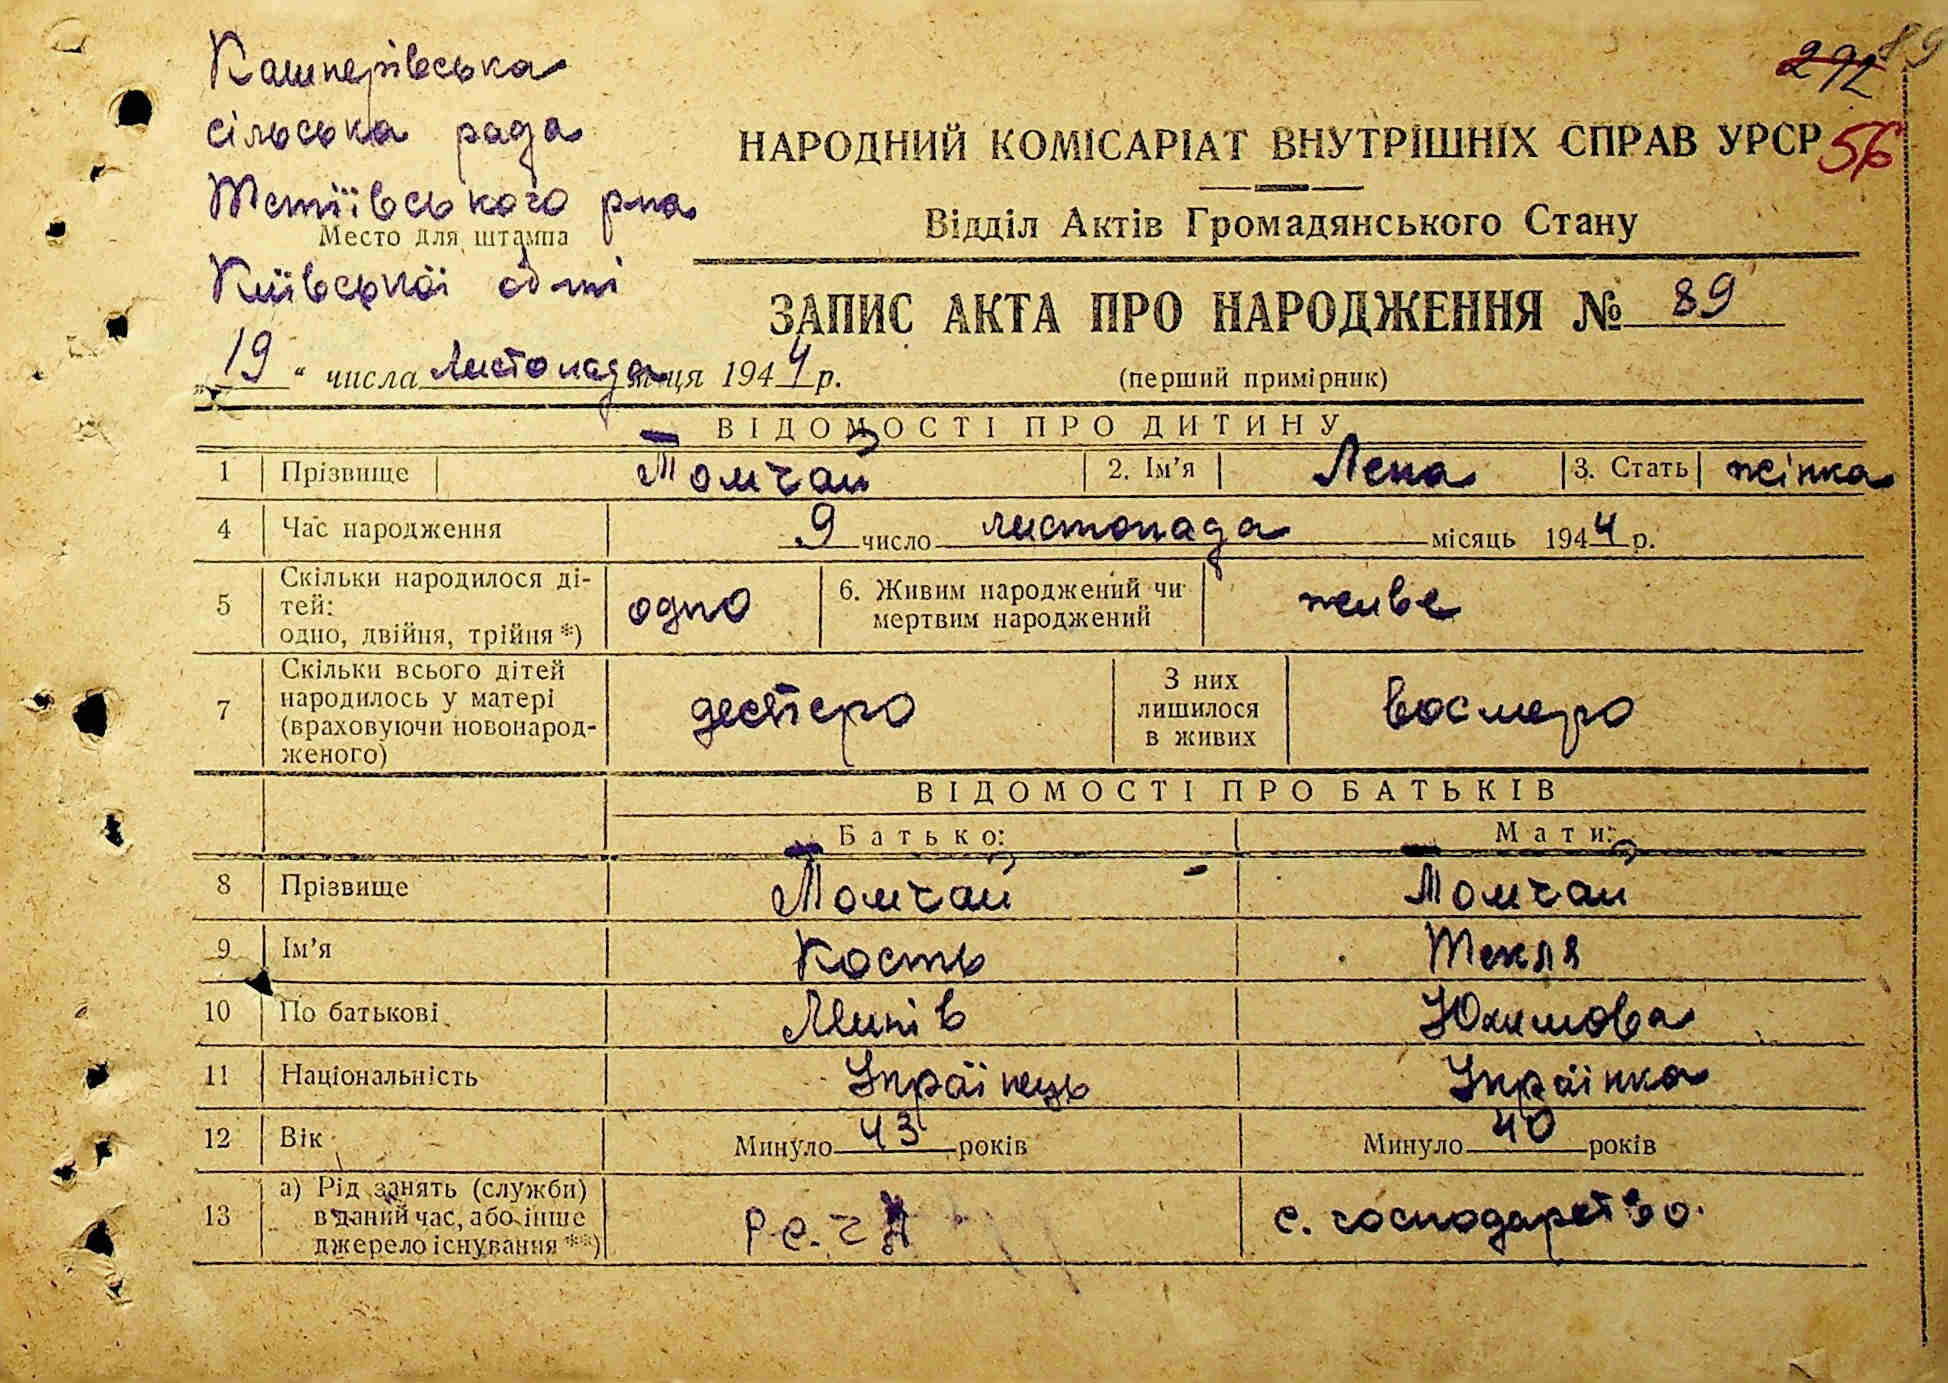 Кашперівська
сільська рада
Тетіївського р-на
Место для штампа
Київської обл-ті
292 89
56
НАРОДНИЙ КОМІСАРІАТ ВНУТРІШНІХ СПРАВ УРСР
Відділ Актів Громадянського Стану
ЗАПИС АКТА ПРО НАРОДЖЕННЯ № 89
„19“ числа листопада м-ця 1944 р.
(перший примірник)
ВІДОМОСТІ ПРО ДИТИНУ
1 Прізвище Томчай 2. Ім’я Лена 3. Стать жінка
4 Час народження 9 число листопада місяць 1944 р.
5 Скільки народилося ді-
тей:
одно, двійня, трійня*) одно 6. Живим народжений чи
мертвим народжений живе
7 Скільки всього дітей
народилось у матері
(враховуючи новонарод-
женого) десятеро З них
лишилося
в живих восмеро
ВІДОМОСТІ ПРО БАТЬКІВ
Батько: Мати:
8 Прізвище Томчай Томчай
9 Ім’я Кость Текля
10 По батькові Юхимова
11 Національність Украінець Украінка
12 Вік Минуло 43 років Минуло 40 років
13 а) Рід занять (служби)
в даний час, або інше
джерело існування**) с. господарство.